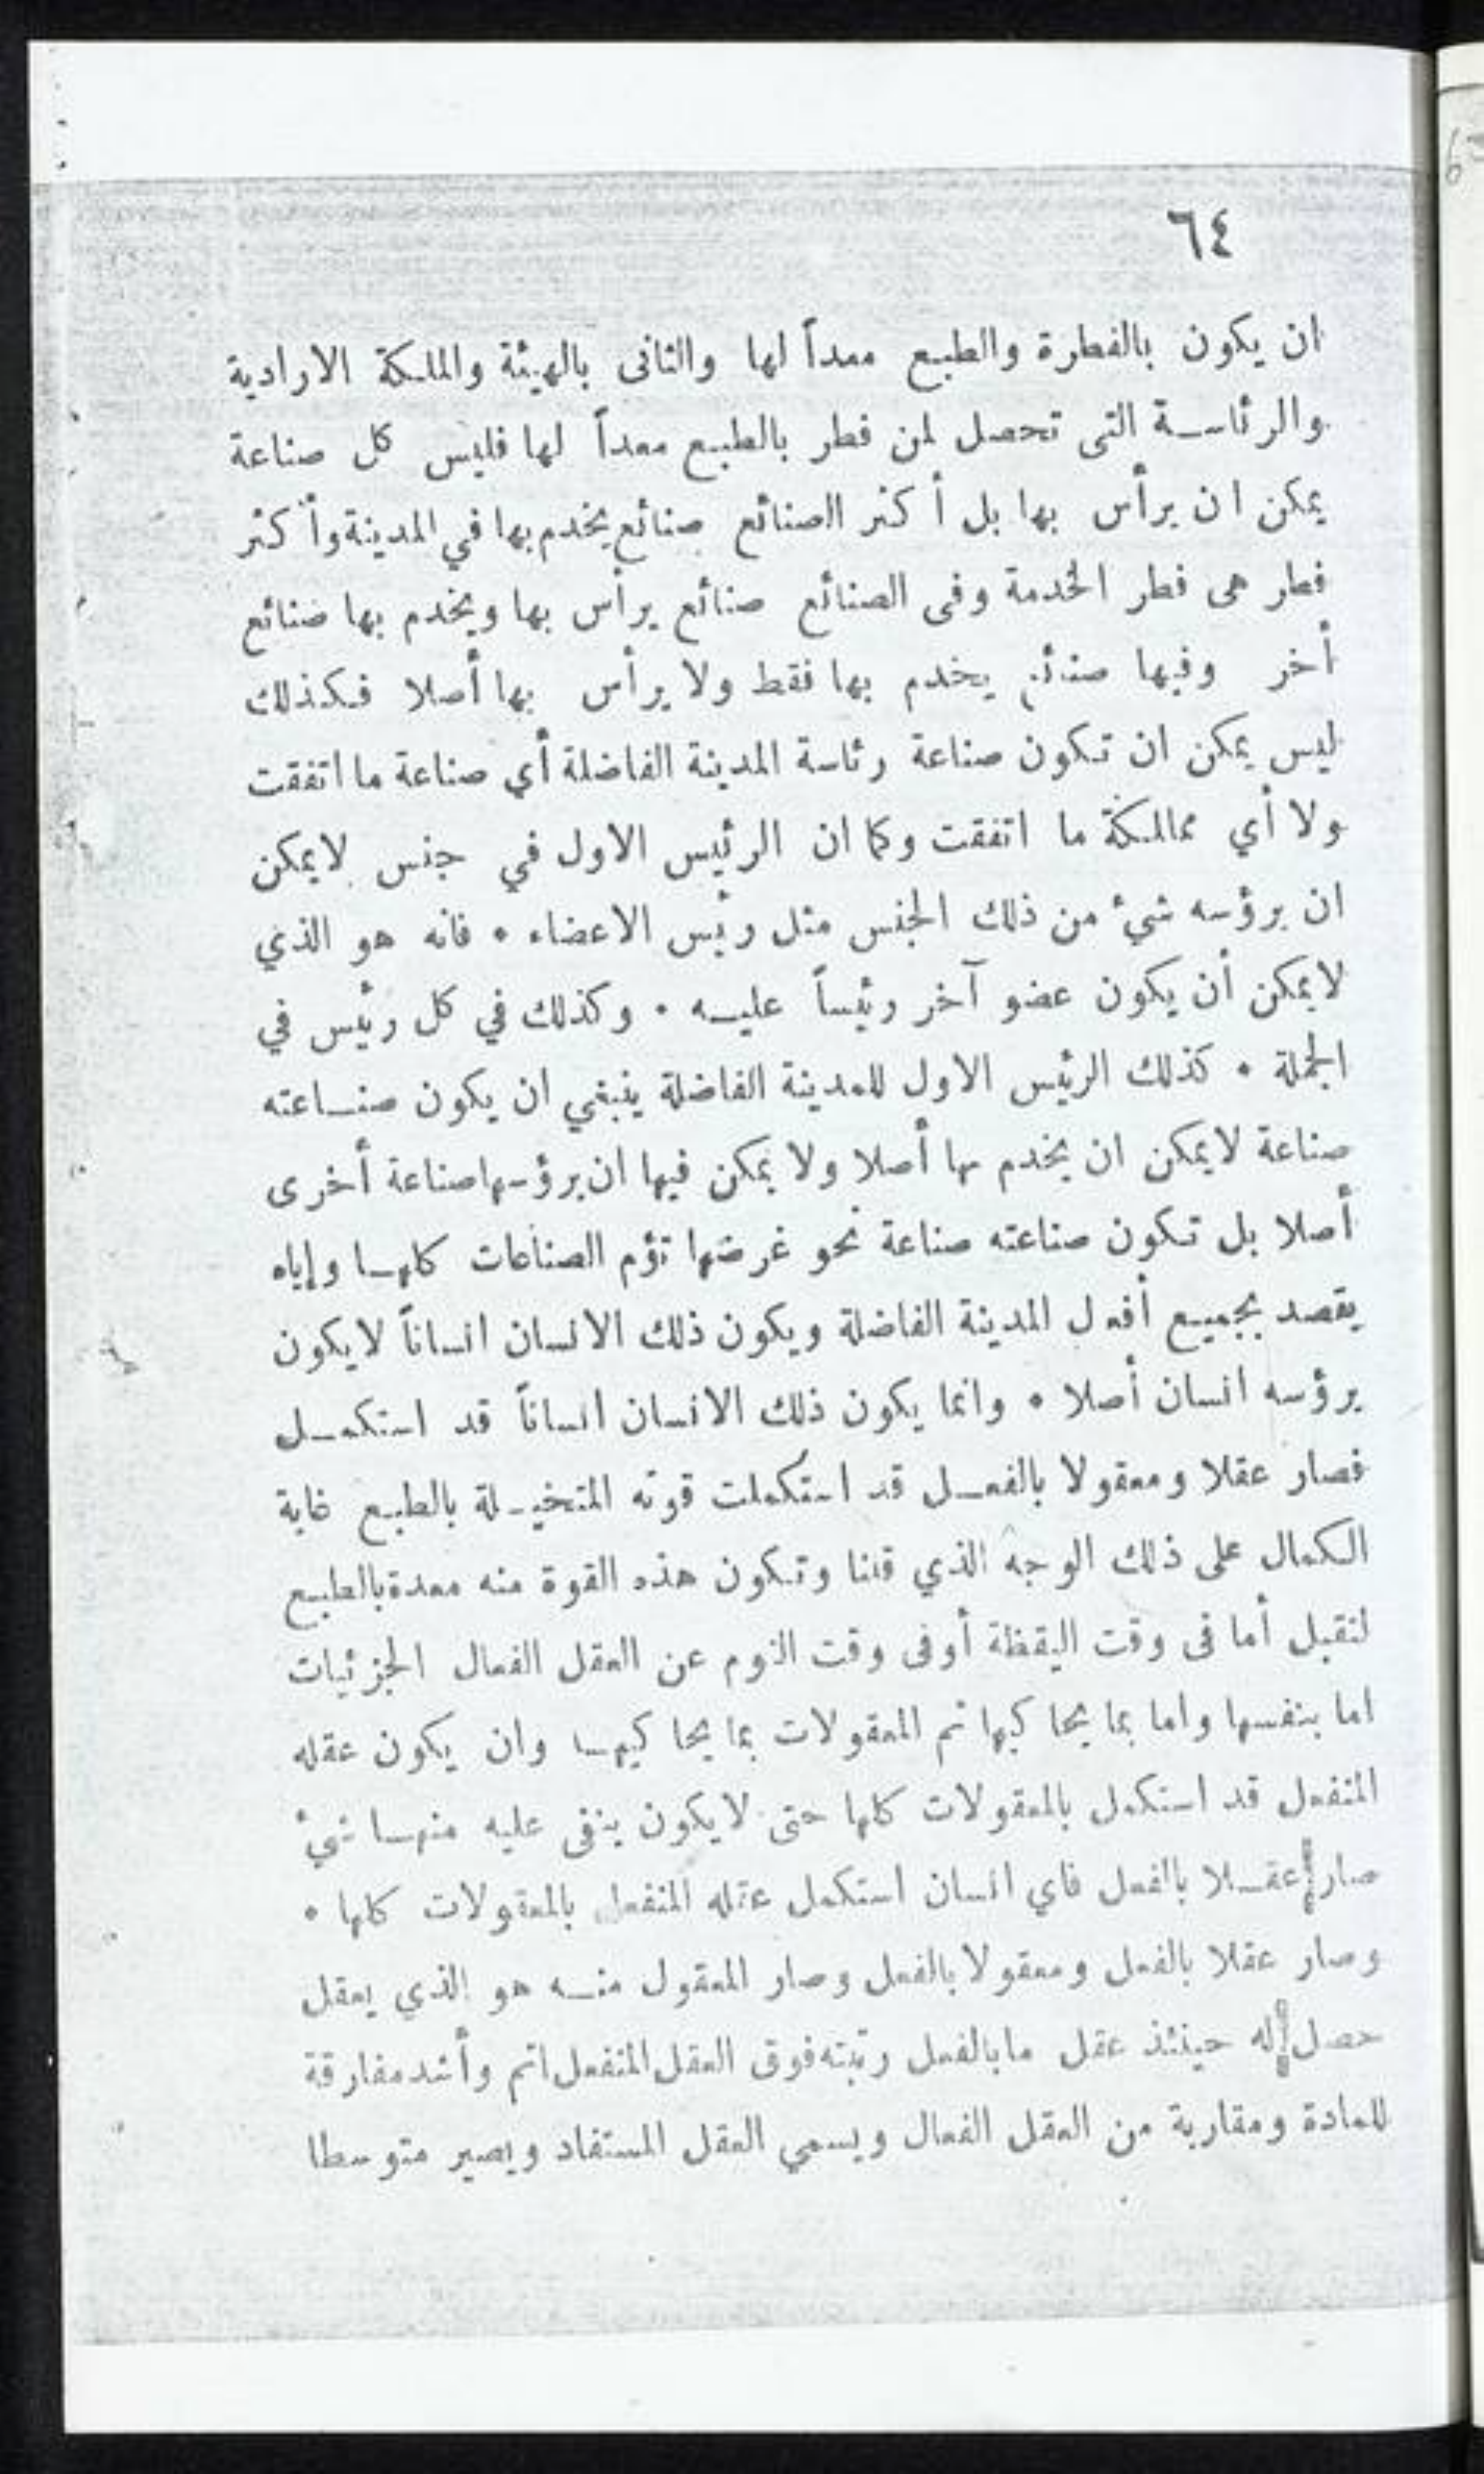 ٦٤
ان يكون بالفطرة والطبع معداً لها والثانى بالهيئة والملكة الارادية
والرئاسة التى تحصل لمن فطر بالطبع معداً لها فليس كل صناعة
يمكن ان يرأس بها بل أكثر الصنائع صنائع يخدم بها في المدينة وأكثر
فطر هى فطر الخدمة وفى الصنائع صنائع يرأس بها ويخدم بها صنائع
أخر وفيها صنائع يخدم بها فقط ولا يرأس بها أصلا فكذلك
ليس يمكن ان تكون صناعة رئاسة المدينة الفاضلة أي صناعة ما اتفقت
ولا أي ممالكة ما اتفقت وكما ان الرئيس الاول في جنس لايمكن
ان يرؤسه شيء من ذلك الجنس مثل رئيس الاعضاء • فانه هو الذي
لايمكن أن يكون عضو آخر رئيساً عليه • وكذلك في كل رئيس في
الجملة • كذلك الرئيس الاول للمدينة الفاضلة ينبغي ان يكون صناعته
صناعة لايمكن ان يخدم بها أصلا ولا يمكن فيها ان يرؤسها صناعة أخرى
أصلا بل تكون صناعته صناعة نحو غرضها تؤم الصناعات كلها وإياه
يقصد بجميع أفعل المدينة الفاضلة ويكون ذلك الانسان انساناً لايكون
يرؤسه انسان أصلا • وانما يكون ذلك الانسان انساناً قد استكمل
فصار عقلا ومعقولا بالفعل قد استكملت قوته المتخيلة بالطبع غاية
الكمال على ذلك الوجه الذي قلنا وتكون هذه القوة منه معدة بالطبع
لتقبل أما فى وقت اليقظة أوفى وقت النوم عن العقل الفعال الجزئيات
اما بنفسها واما بما يحاكيها ثم المعقولات بما يحاكيها وان يكون عقله
المنفعل قد استكمل بالمعقولات كلها حتى لايكون ينفى عليه منها شيء
صار عقلا بالفعل فاي انسان استكمل عقله المنفعل بالمعقولات كلها •
وصار عقلا بالفعل ومعقولا بالفعل وصار المعقول منه هو الذي يعقل
حصل له حينئذ عقل ما بالفعل رتبته فوق العقل المنفعل اتم وأشد مفارقة
للمادة ومقاربة من العقل الفعال ويسمي العقل المستفاد ويصير متوسطا